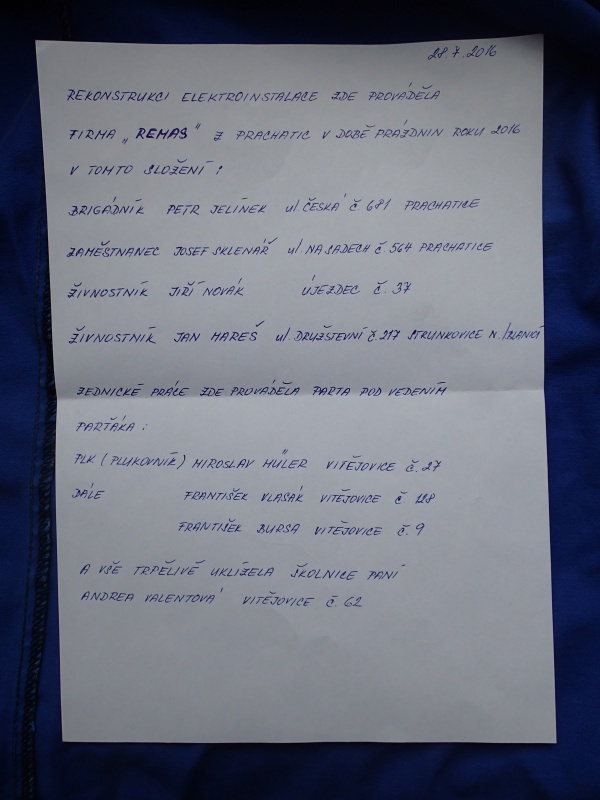 28.7.2016
REKONSTRUKCI ELEKTROINSTALACE ZDE PROVÁDĚLA
FIRMA „REMAS" Z PRACHATIC V DOBĚ PRÁZDNIN ROKU 2016
V TOMTO SLOŽENÍ:
BRIGÁDNÍK PETR JELÍNEK ul ČESKÁ Č 681 PRACHATICE
ZAMĚSTNANEC JOSEF SKLENÁŘ ul. NA SADECH Č. 564 PRACHATICE
ŽIVNOSTNÍK JIŘÍ NOVÁK ÚJEZDEC Č. 37
ŽIVNOSTNÍK JAN MAREŠ ul. DRUŽSTEVNÍ Č. 217 STRUNKOVICE N./BLANICÍ
ZEDNICKÉ PRÁCE ZDE PROVÁDĚLA PARTA POD VEDENÍM
PARŤÁKA:
PLK (PLUKOVNÍK) MIROSLAV MÜLER VITĚJOVICE Č. 27
DÁLE FRANTIŠEK VLAŠÁK VITĚJOVICE Č 128
FRANTIŠEK BURSA VITĚJOVICE Č. 9
A VŠE TRPĚLIVĚ UKLÍZELA ŠKOLNICE PANÍ
ANDREA VALENTOVÁ VITĚJOVICE Č. 62